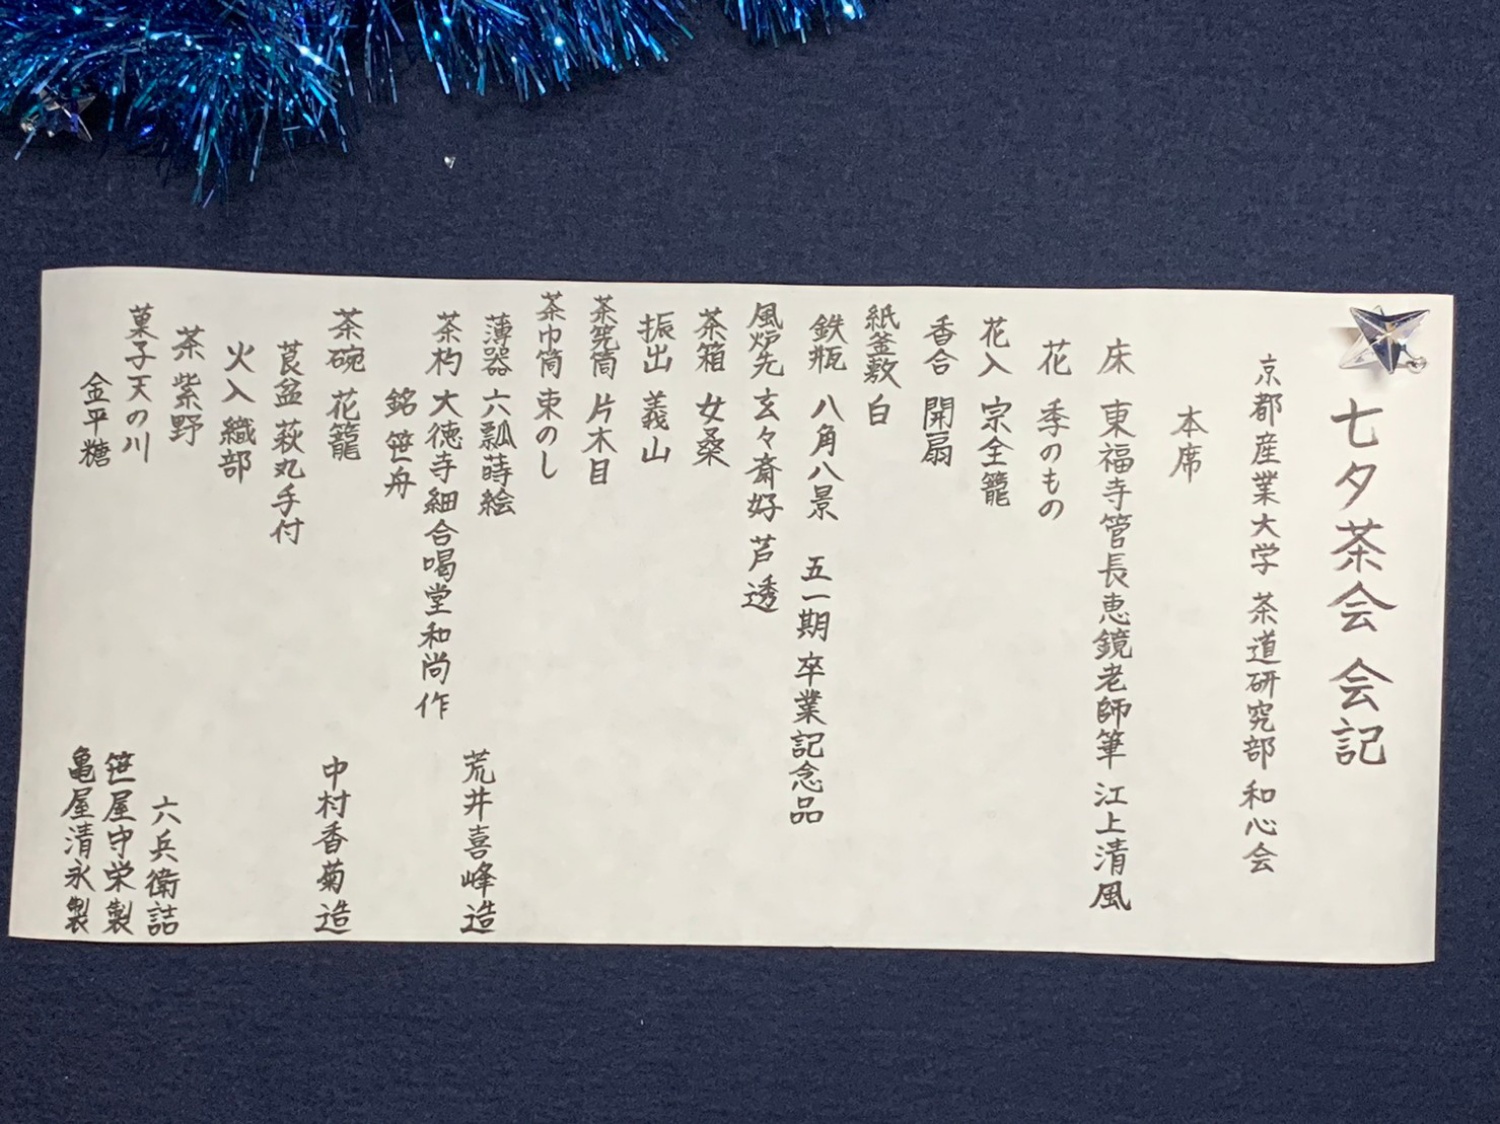 七夕茶会 会記
京都産業大学 茶道研究部 和心会
本席
床 東福寺管長恵鏡老師筆 江上清風
花 季のもの
花入 宗全籠
香合 開扇
紙釜敷 白
鉄瓶 八角八景 五一期 卒業記念品
風炉先 玄々斎好 芦透
茶箱 女桑
振出 義山
茶筅筒 片木目
茶巾筒 束のし
薄器 六瓢蒔絵 荒井喜峰造
茶杓 大徳寺細合喝堂和尚作
銘 笹舟
茶碗 花籠 中村香菊造
莨盆 萩丸手付
火入 織部
茶 紫野 六兵衛詰
菓子 天の川 笹屋守栄製
金平糖 亀屋清永製